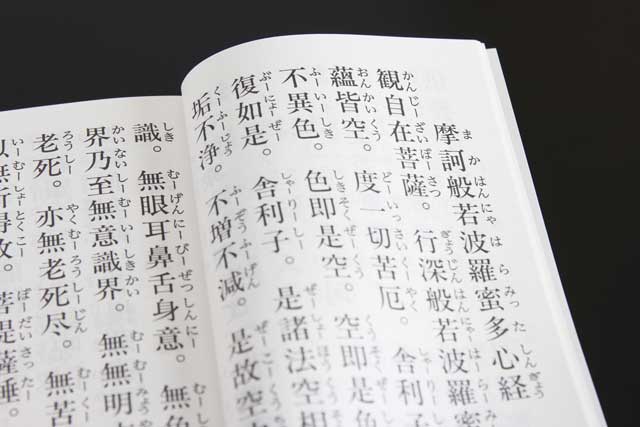 摩訶般若波羅蜜多心経
まかはんにゃはらみったしんぎょう
観自在菩薩。行深般若波羅蜜
かんじーざいぼーさつぎょうじんはんにゃーはーらーみー
蘊皆空。度一切苦厄。舎利
おんかいくうどーいっさいくーやくしゃーりー
不異色。色即是空。空即是色
ふーいーしきしきそくぜーくうくうそくぜー
復如是。舎利子。是諸法空相
ぶーにょーぜーしゃーりーしーぜーしょーほうくう
垢不浄。不増不減。是故空
くーふーじょうふーぞうふーげんぜーこーくう
識。無眼耳鼻舌身意。無
しきむーげんにーびーぜっしんにーむー
界乃至無意識界。無無明
かいないしーむーいーしきかいむーむーみょう
老死。亦無老死尽。無苦
ろうしーやくむーろうしーじんむーくー
以無所得故。菩提薩埵
いーむーしょーとくこーぼーだいさったー